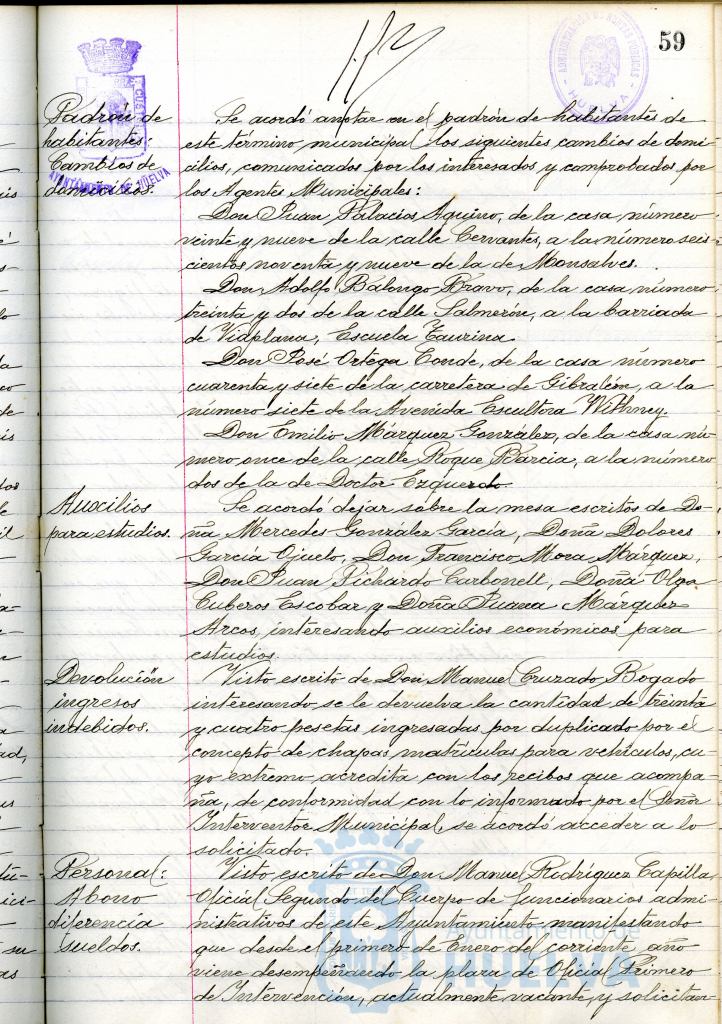 59
Padrón de
habitantes.
Cambios de
domicilios.
AYUNTAMIENTO DE HUELVA
Se acordó anotar en el padrón de habitantes de
este término municipal los siguientes cambios de domi-
cilios, comunicados por los interesados y comprobados por
los Agentes Municipales:
Don Juan Palacios Aquino, de la casa número
veinte y nueve de la calle Cervantes, a la número seis-
cientos noventa y nueve de la de Monsalves.
Don Adolfo Balongo Bravo, de la casa número
treinta y dos de la calle Salmerón, a la barriada
de Viaplana, Escuela Taurina.
Don José Ortega Conde, de la casa número
cuarenta y siete de la carretera de Gibraleón, a la
número siete de la Avenida Escultora Withney.
Don Emilio Márquez González, de la casa nú-
mero once de la calle Roque Barcia, a la número
dos de la de Doctor Ezquerdo.
Auxilios
para estudios.
Se acordó dejar sobre la mesa escritos de Do-
ña Mercedes González García, Doña Dolores
García Ojuelo, Don Francisco Mora Márquez,
Don Juan Pichardo Carbonell, Doña Olga
Cuberos Escobar y Doña Juana Márquez
Arcos, interesando auxilios económicos para
estudios.
Devolución
ingresos
indebidos.
Visto escrito de Don Manuel Cruzado Bogado
interesando se le devuelva la cantidad de treinta
y cuatro pesetas ingresadas por duplicado por el
concepto de chapas matrículas para vehículos, cu-
yo extremo acredita con los recibos que acompa-
ña, de conformidad con lo informado por el Señor
Interventor Municipal, se acordó acceder a lo
solicitado.
Personal:
Abono
diferencia
sueldos.
Visto escrito de Don Manuel Rodríguez Capilla,
Oficial Segundo del Cuerpo de funcionarios admi-
nistrativos de este Ayuntamiento manifestando
que desde el primero de Enero del corriente año
viene desempeñando la plaza de Oficial Primero
de Intervención, actualmente vacante, y solicitan-
Ayuntamiento de
HUELVA